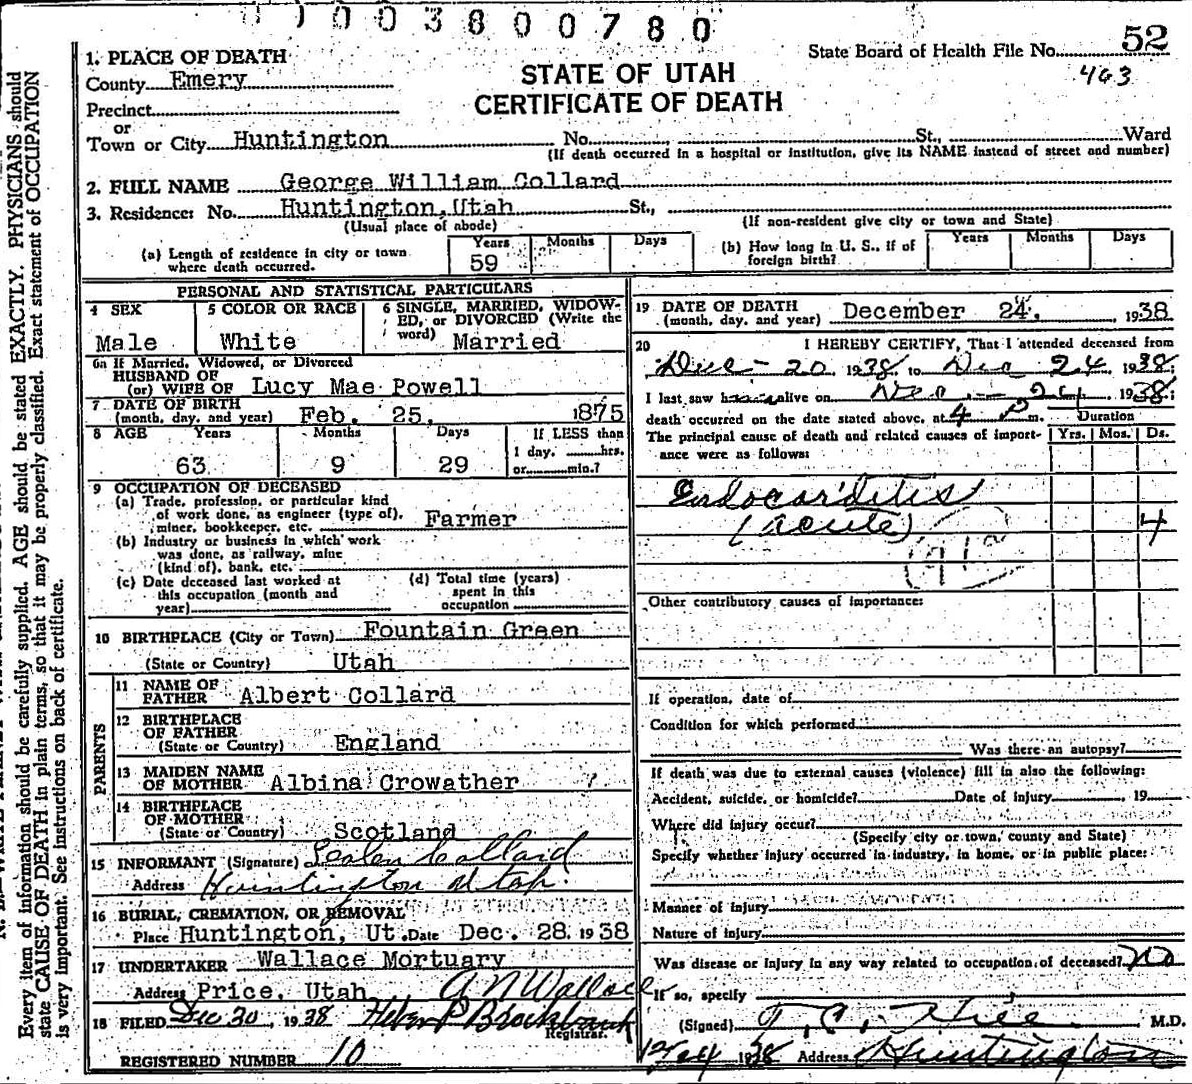 0 1 0 0 3 8 0 0 7 8 0
State Board of Health File No. 52
463
STATE OF UTAH
CERTIFICATE OF DEATH
1. PLACE OF DEATH
County Emery
Precinct
or
Town or City Huntington No. St., Ward
(If death occurred in a hospital or institution, give its NAME instead of street and number)
2. FULL NAME George William Collard
3. Residence: No. Huntington, Utah St.,
(Usual place of abode) (If non-resident give city or town and State)
(a) Length of residence in city or town where death occurred. Years 59 Months Days
(b) How long in U. S., if of foreign birth? Years Months Days
PERSONAL AND STATISTICAL PARTICULARS
4 SEX Male
5 COLOR OR RACE White
6 SINGLE, MARRIED, WIDOWED, or DIVORCED (Write the word) Married
6a If Married, Widowed, or Divorced
HUSBAND OF
(or) WIFE OF Lucy Mae Powell
7 DATE OF BIRTH
(month, day, and year) Feb. 25, 1875
8 AGE Years Months Days If LESS than
1 day, hrs.
63 9 29 or min.?
9 OCCUPATION OF DECEASED
(a) Trade, profession, or particular kind
of work done, as engineer (type of),
miner, bookkeeper, etc. Farmer
(b) Industry or business in which work
was done, as railway, mine
(kind of), bank, etc.
(c) Date deceased last worked at
this occupation (month and
year)
(d) Total time (years)
spent in this
occupation
10 BIRTHPLACE (City or Town) Fountain Green
(State or Country) Utah
PARENTS
11 NAME OF
FATHER Albert Collard
12 BIRTHPLACE
OF FATHER
(State or Country) England
13 MAIDEN NAME
OF MOTHER Albina Crowather
14 BIRTHPLACE
OF MOTHER
(State or Country) Scotland
15 INFORMANT (Signature) Collard
Address Huntington Utah.
16 BURIAL, CREMATION, OR REMOVAL
Place Huntington, Ut. Date Dec. 28. 1938
17 UNDERTAKER Wallace Mortuary
Address Price, Utah A N Wallace
18 FILED Dec 30, 1938 Heber P Brockbank
Registrar.
REGISTERED NUMBER 10
19 DATE OF DEATH
(month, day, and year) December 24, 1938
20 I HEREBY CERTIFY, That I attended deceased from
Dec - 20 1938 to Dec 24 1938
I last saw h alive on Dec - 24, 1938;
death occurred on the date stated above, at 4 P m. Duration
The principal cause of death and related causes of importance were as follows: Yrs. Mos. Ds.
Endocarditis
(acute) 4
Other contributory causes of importance:
If operation, date of
Condition for which performed
Was there an autopsy?
If death was due to external causes (violence) fill in also the following:
Accident, suicide, or homicide? Date of injury , 19
Where did injury occur?
(Specify city or town, county and State)
Specify whether injury occurred in industry, in home, or in public place:
Manner of injury
Nature of injury
Was disease or injury in any way related to occupation of deceased? no
If so, specify
(Signed) T. C. Hill M.D.
1938 Address Huntington
Every item of information should be carefully supplied. AGE should be stated EXACTLY. PHYSICIANS should
state CAUSE OF DEATH in plain terms, so that it may be properly classified. Exact statement of OCCUPATION
is very important. See instructions on back of certificate.